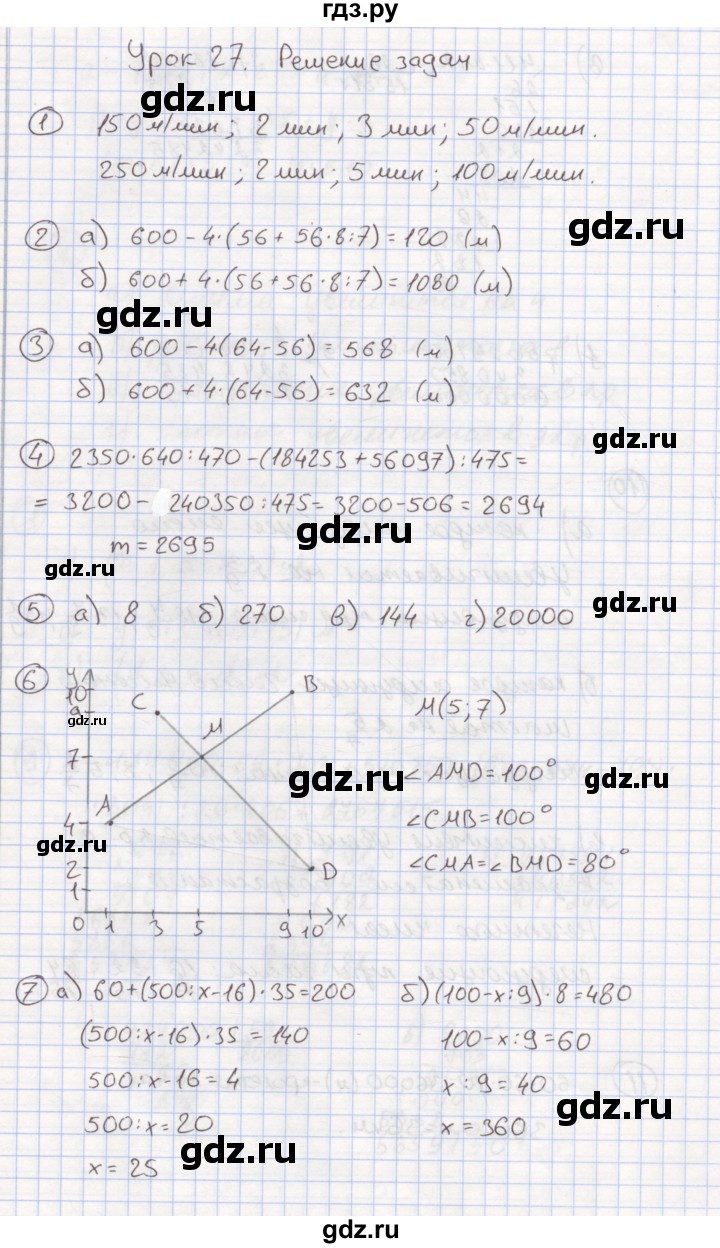 гдз.ру
Урок 27. Решение задач
gdz.ru
① 150 м/мин; 2 мин; 3 мин; 50 м/мин.
250 м/мин; 2 мин; 5 мин; 100 м/мин.
gdz.ru
② а) 600 - 4·(56 + 56·8:7) = 120 (м)
б) 600 + 4·(56 + 56·8:7) = 1080 (м)
gdz.ru
③ а) 600 - 4(64-56) = 568 (м)
б) 600 + 4·(64-56) = 632 (м)
gdz.ru
④ 2350·640:470 - (184253 + 56097):475 =
= 3200 - 240350:475 = 3200 - 506 = 2694
gdz.ru
m = 2695
gdz.ru
⑤ а) 8 б) 270 в) 144 г) 20000
gdz.ru
⑥ y
10
9
7
4
2
1
0 1 3 5 9 10 x
A B C D M
M(5; 7)
∠AMD = 100°
∠CMB = 100°
∠CMA = ∠BMD = 80°
gdz.ru
gdz.ru
gdz.ru
gdz.ru
⑦ а) 60 + (500:x - 16)·35 = 200 б) (100 - x:9)·8 = 480
(500:x - 16)·35 = 140 100 - x:9 = 60
500:x - 16 = 4 x:9 = 40
500:x = 20 x = 360
x = 25
gdz.ru
gdz.ru
gdz.ru